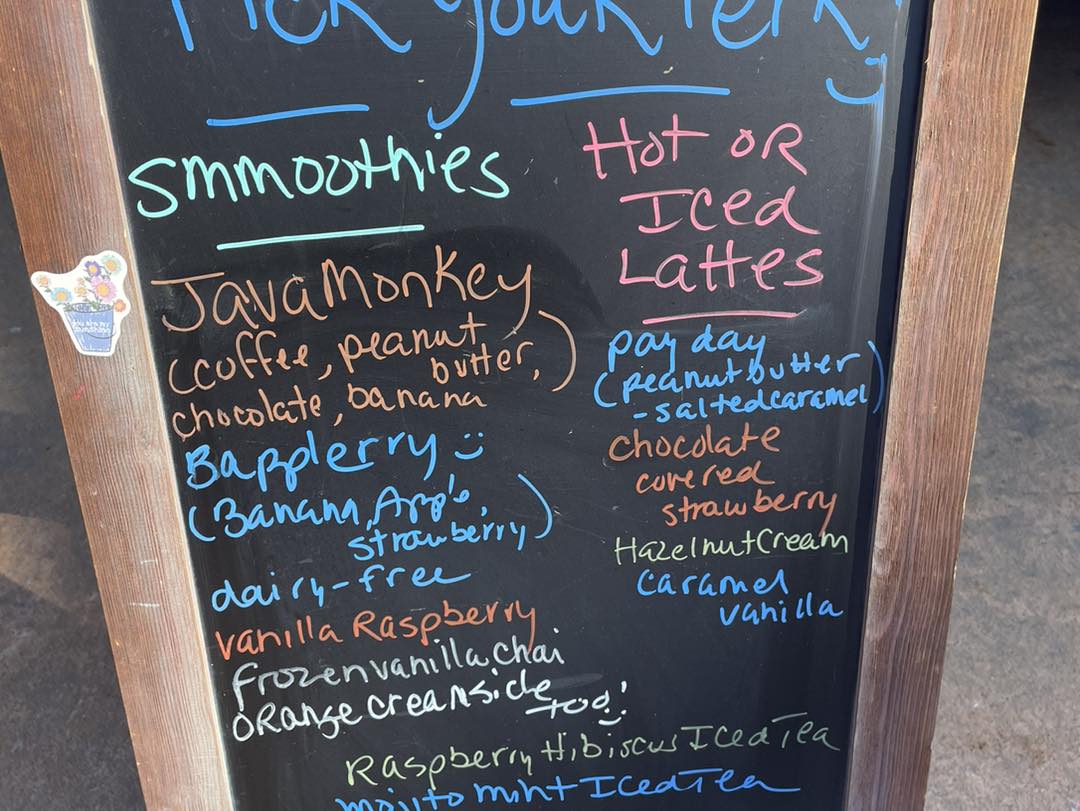 Pick your Perk!
Smmoothies
Java Monkey
(coffee, peanut
butter,)
chocolate, banana
Bapplerry
(Banana, Apple,
strawberry)
dairy-free
vanilla Raspberry
frozen vanilla chai
orange creamsicle
too!
Hot OR
Iced
Lattes
pay day
(peanut butter
-salted caramel)
chocolate
covered
strawberry
Hazelnut Cream
caramel
vanilla
Raspberry Hibiscus Iced Tea
mojito mint Iced Tea
you are my
sunshine